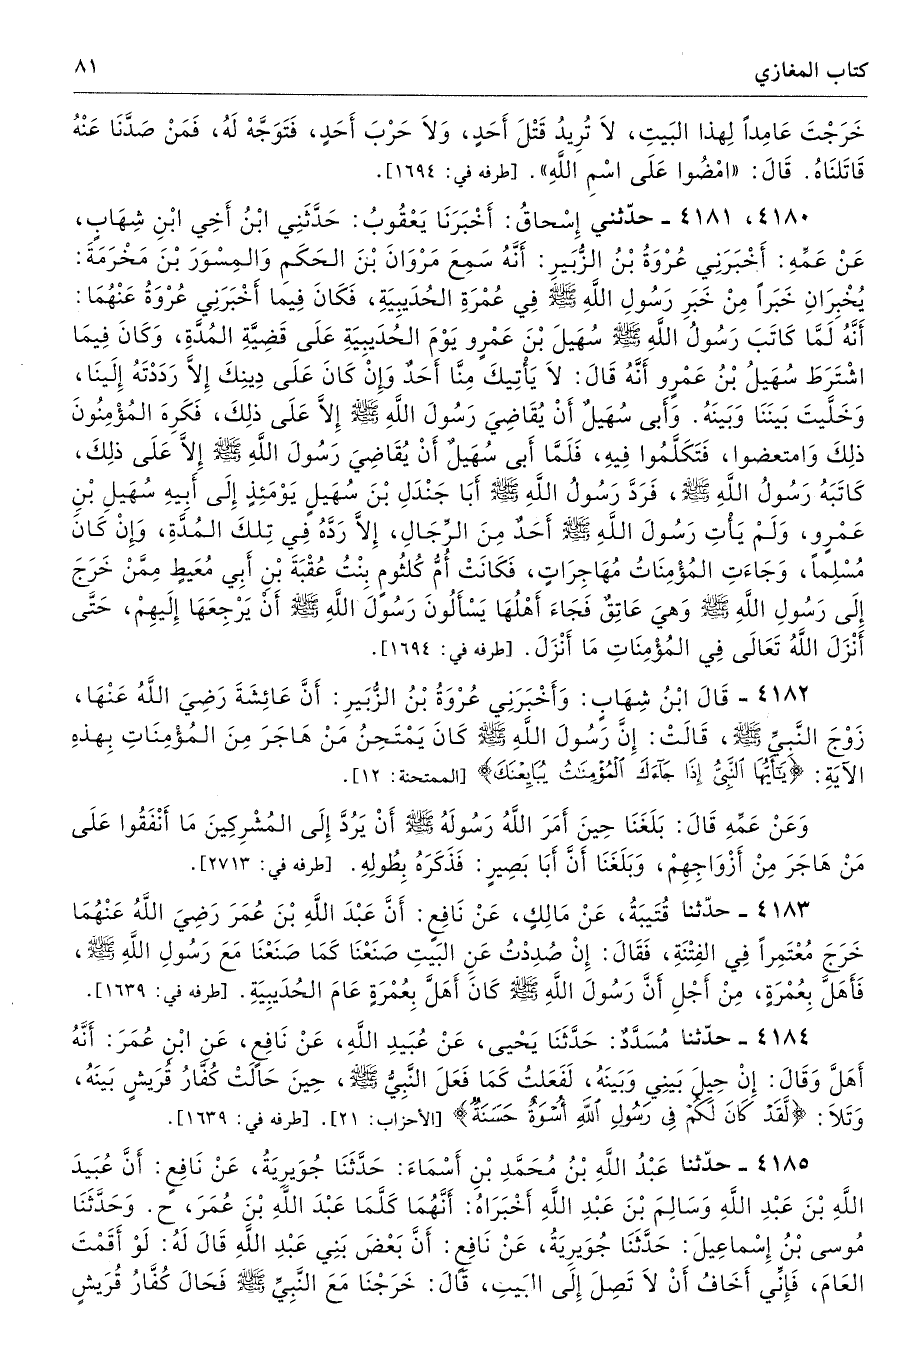 كتاب المغازي ٨١
خَرَجْتَ عَامِداً لِهذا البَيتِ، لاَ تُرِيدُ قَتْلَ أَحَدٍ، وَلاَ حَرْبَ أَحَدٍ، فَتَوَجَّهْ لَهُ، فَمَنْ صَدَّنَا عَنْهُ
قَاتَلنَاهُ. قَالَ: «امْضُوا عَلَى اسْمِ اللَّهِ». [طرفه في: ١٦٩٤].
٤١٨٠، ٤١٨١ ـ حدّثني إِسْحاقُ: أَخْبَرَنَا يَعْقُوبُ: حَدَّثَنِي ابْنُ أَخِي ابْنِ شِهَابٍ،
عَنْ عَمِّهِ: أَخْبَرَنِي عُرْوَةُ بْنُ الزُّبَيرِ: أَنَّهُ سَمِعَ مَرْوَانَ بْنَ الحَكَمِ وَالمِسْوَرَ بْنَ مَخْرَمَةَ:
يُخْبِرَانِ خَبَراً مِنْ خَبَرِ رَسُولِ اللَّهِ ﷺ فِي عُمْرَةِ الحُدَيبِيَةِ، فَكَانَ فِيما أَخْبَرَنِي عُرْوَةُ عَنْهُمَا:
أَنَّهُ لَمَّا كَاتَبَ رَسُولُ اللَّهِ ﷺ سُهَيلَ بْنَ عَمْرٍو يَوْمَ الحُدَيبِيَةِ عَلَى قَضِيَّةِ المُدَّةِ، وَكَانَ فِيمَا
اشْتَرَطَ سُهَيلُ بْنُ عَمْرٍو أَنَّهُ قَالَ: لاَ يَأْتِيكَ مِنَّا أَحَدٌ وَإِنْ كَانَ عَلَى دِينِكَ إِلاَّ رَدَدْتَهُ إِلَينَا،
وَخَلَّيتَ بَينَنَا وَبَينَهُ. وَأَبى سُهَيلٌ أَنْ يُقَاضِيَ رَسُولَ اللَّهِ ﷺ إِلاَّ عَلَى ذلِكَ، فَكَرِهَ المُؤْمِنُونَ
ذلِكَ وَامتعضوا، فَتَكَلَّمُوا فِيهِ، فَلَمَّا أَبى سُهَيلٌ أَنْ يُقَاضِيَ رَسُولَ اللَّهِ ﷺ إِلاَّ عَلَى ذلِكَ،
كَاتَبَهُ رَسُولُ اللَّهِ ﷺ، فَرَدَّ رَسُولُ اللَّهِ ﷺ أَبَا جَنْدَلِ بْنَ سُهَيلٍ يَوْمَئِذٍ إِلَى أَبِيهِ سُهَيلِ بْنِ
عَمْرٍو، وَلَمْ يَأْتِ رَسُولَ اللَّهِ ﷺ أَحَدٌ مِنَ الرِّجَالِ، إِلاَّ رَدَّهُ فِي تِلكَ المُدَّةِ، وَإِنْ كَانَ
مُسْلِماً، وَجَاءَتِ المُؤْمِنَاتُ مُهَاجِرَاتٍ، فَكَانَتْ أُمُّ كُلثُومٍ بِنْتُ عُقْبَةَ بْنِ أَبِي مُعَيطٍ مِمَّنْ خَرَجَ
إِلَى رَسُولِ اللَّهِ ﷺ وَهيَ عَاتِقٌ فَجَاءَ أَهْلُهَا يَسْأَلُونَ رَسُولَ اللَّهِ ﷺ أَنْ يَرْجِعَهَا إِلَيهِمْ، حَتَّى
أَنْزَلَ اللَّهُ تَعَالَى فِي المُؤْمِنَاتِ مَا أَنْزَلَ. [طرفه في: ١٦٩٤].
٤١٨٢ ـ قَالَ ابْنُ شِهَابٍ: وَأَخْبَرَنِي عُرْوَةُ بْنُ الزُّبَيرِ: أَنَّ عَائِشَةَ رَضِيَ اللَّهُ عَنْهَا،
زَوْجَ النَّبِيِّ ﷺ، قَالَتْ: إِنَّ رَسُولَ اللَّهِ ﷺ كَانَ يَمْتَحِنُ مَنْ هَاجَرَ مِنَ المُؤْمِنَاتِ بِهذهِ
الآيَةِ: ﴿يَٰٓأَيُّهَا ٱلنَّبِيُّ إِذَا جَآءَكَ ٱلْمُؤْمِنَٰتُ يُبَايِعْنَكَ﴾ [الممتحنة: ١٢].
وَعَنْ عَمِّهِ قَالَ: بَلَغَنَا حِينَ أَمَرَ اللَّهُ رَسُولَهُ ﷺ أَنْ يَرُدَّ إِلَى المُشْرِكِينَ مَا أَنْفَقُوا عَلَى
مَنْ هَاجَرَ مِنْ أَزْوَاجِهِمْ، وَبَلَغَنَا أَنَّ أَبَا بَصِيرٍ: فَذَكَرَهُ بِطُولِهِ. [طرفه في: ٢٧١٣].
٤١٨٣ ـ حدّثنا قُتَيبَةُ، عَنْ مَالِكٍ، عَنْ نَافِعٍ: أَنَّ عَبْدَ اللَّهِ بْنَ عُمَرَ رَضِيَ اللَّهُ عَنْهُمَا
خَرَجَ مُعْتَمِراً فِي الفِتْنَةِ، فَقَالَ: إِنْ صُدِدْتُ عَنِ البَيتِ صَنَعْنَا كَمَا صَنَعْنَا مَعَ رَسُولِ اللَّهِ ﷺ،
فَأَهَلَّ بِعُمْرَةٍ، مِنْ أَجْلِ أَنَّ رَسُولَ اللَّهِ ﷺ كَانَ أَهَلَّ بِعُمْرَةٍ عَامَ الحُدَيبِيَةِ. [طرفه في: ١٦٣٩].
٤١٨٤ ـ حدّثنا مُسَدَّدٌ: حَدَّثَنَا يَحْيى، عَنْ عُبَيدِ اللَّهِ، عَنْ نَافِعٍ، عَنِ ابْنِ عُمَرَ: أَنَّهُ
أَهَلَّ وَقَالَ: إِنْ حِيلَ بَينِي وَبَينَهُ، لَفَعَلتُ كَمَا فَعَلَ النَّبِيُّ ﷺ، حِينَ حَالَتْ كُفَّارُ قُرَيشٍ بَينَهُ،
وَتَلاَ: ﴿لَّقَدْ كَانَ لَكُمْ فِى رَسُولِ ٱللَّهِ أُسْوَةٌ حَسَنَةٌ﴾ [الأحزاب: ٢١]. [طرفه في: ١٦٣٩].
٤١٨٥ ـ حدّثنا عَبْدُ اللَّهِ بْنُ مُحَمَّدِ بْنِ أَسْمَاءَ: حَدَّثَنَا جُوَيرِيَةُ، عَنْ نَافِعٍ: أَنَّ عُبَيدَ
اللَّهِ بْنَ عَبْدِ اللَّهِ وَسَالِمَ بْنَ عَبْدِ اللَّهِ أَخْبَرَاهُ: أَنَّهُمَا كَلَّمَا عَبْدَ اللَّهِ بْنَ عُمَرَ، ح. وَحَدَّثَنَا
مُوسى بْنُ إِسْماعِيلَ: حَدَّثَنَا جُوَيرِيَةُ، عَنْ نَافِعٍ: أَنَّ بَعْضَ بَنِي عَبْدِ اللَّهِ قَالَ لَهُ: لَوْ أَقَمْتَ
العَامَ، فَإِنِّي أَخَافُ أَنْ لاَ تَصِلَ إِلَى البَيتِ، قَالَ: خَرَجْنَا مَعَ النَّبِيِّ ﷺ فَحَالَ كُفَّارُ قُرَيشٍ